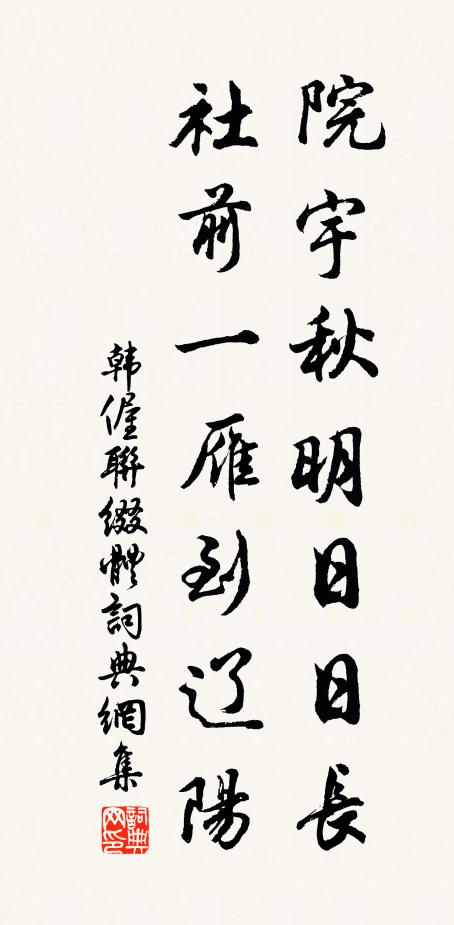 院宇秋明日日長
社前一雁到辽陽
韩偓聯綴體詞典網集
詞典
网印